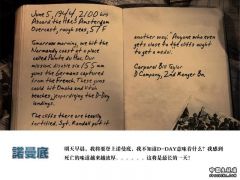 June 5, 1944, 2100 hrs
Aboard the HMS Amsterdam
Overcast, rough seas, 57 F
Tomorrow morning, we hit the
Normandy coast at a place
called Pointe du Hoc. Our
mission: disable six 155 mm
guns the Germans captured
from the French. These guns
could hit Omaha and Utah
beaches, jeopardizing the D-Day
landings.
The cliffs there are heavily
fortified. Sgt. Randall put it
another way: "Anyone who even
gets close to the cliffs ought
to get a medal."
Corporal Bill Taylor
D Company, 2nd Ranger Bn.
諾曼底
明天早晨,我將要登上诺曼底,我不知道D-DAY意味着什么?我感到
死亡的味道越來越浓厚......這將是最長的一天!